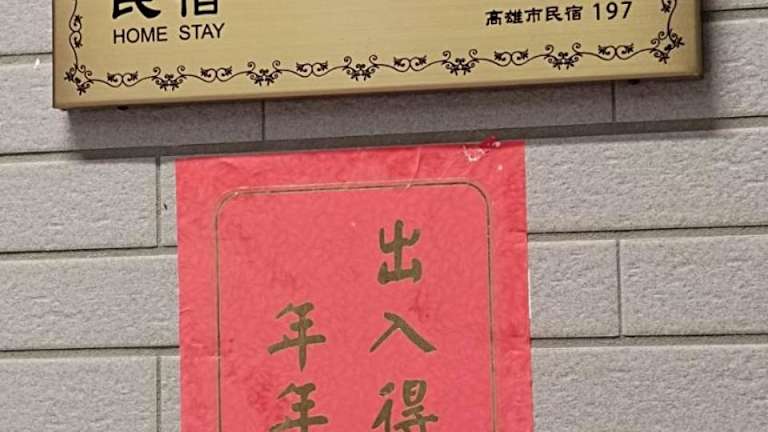 民宿
HOME STAY
高雄市民宿 197
出入得
年年